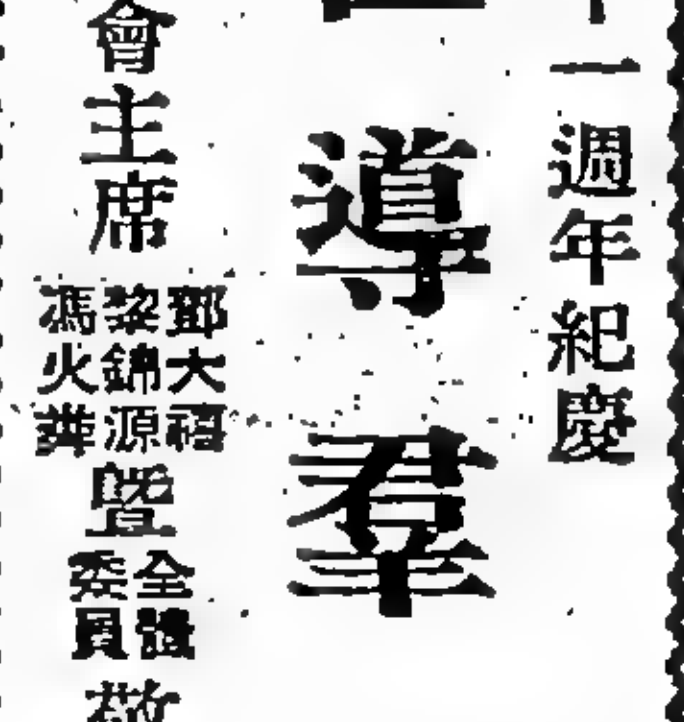 一週年紀慶
導羣
會主席
鄧大禧
黎錦源
馮火
暨
全體
委員
敬